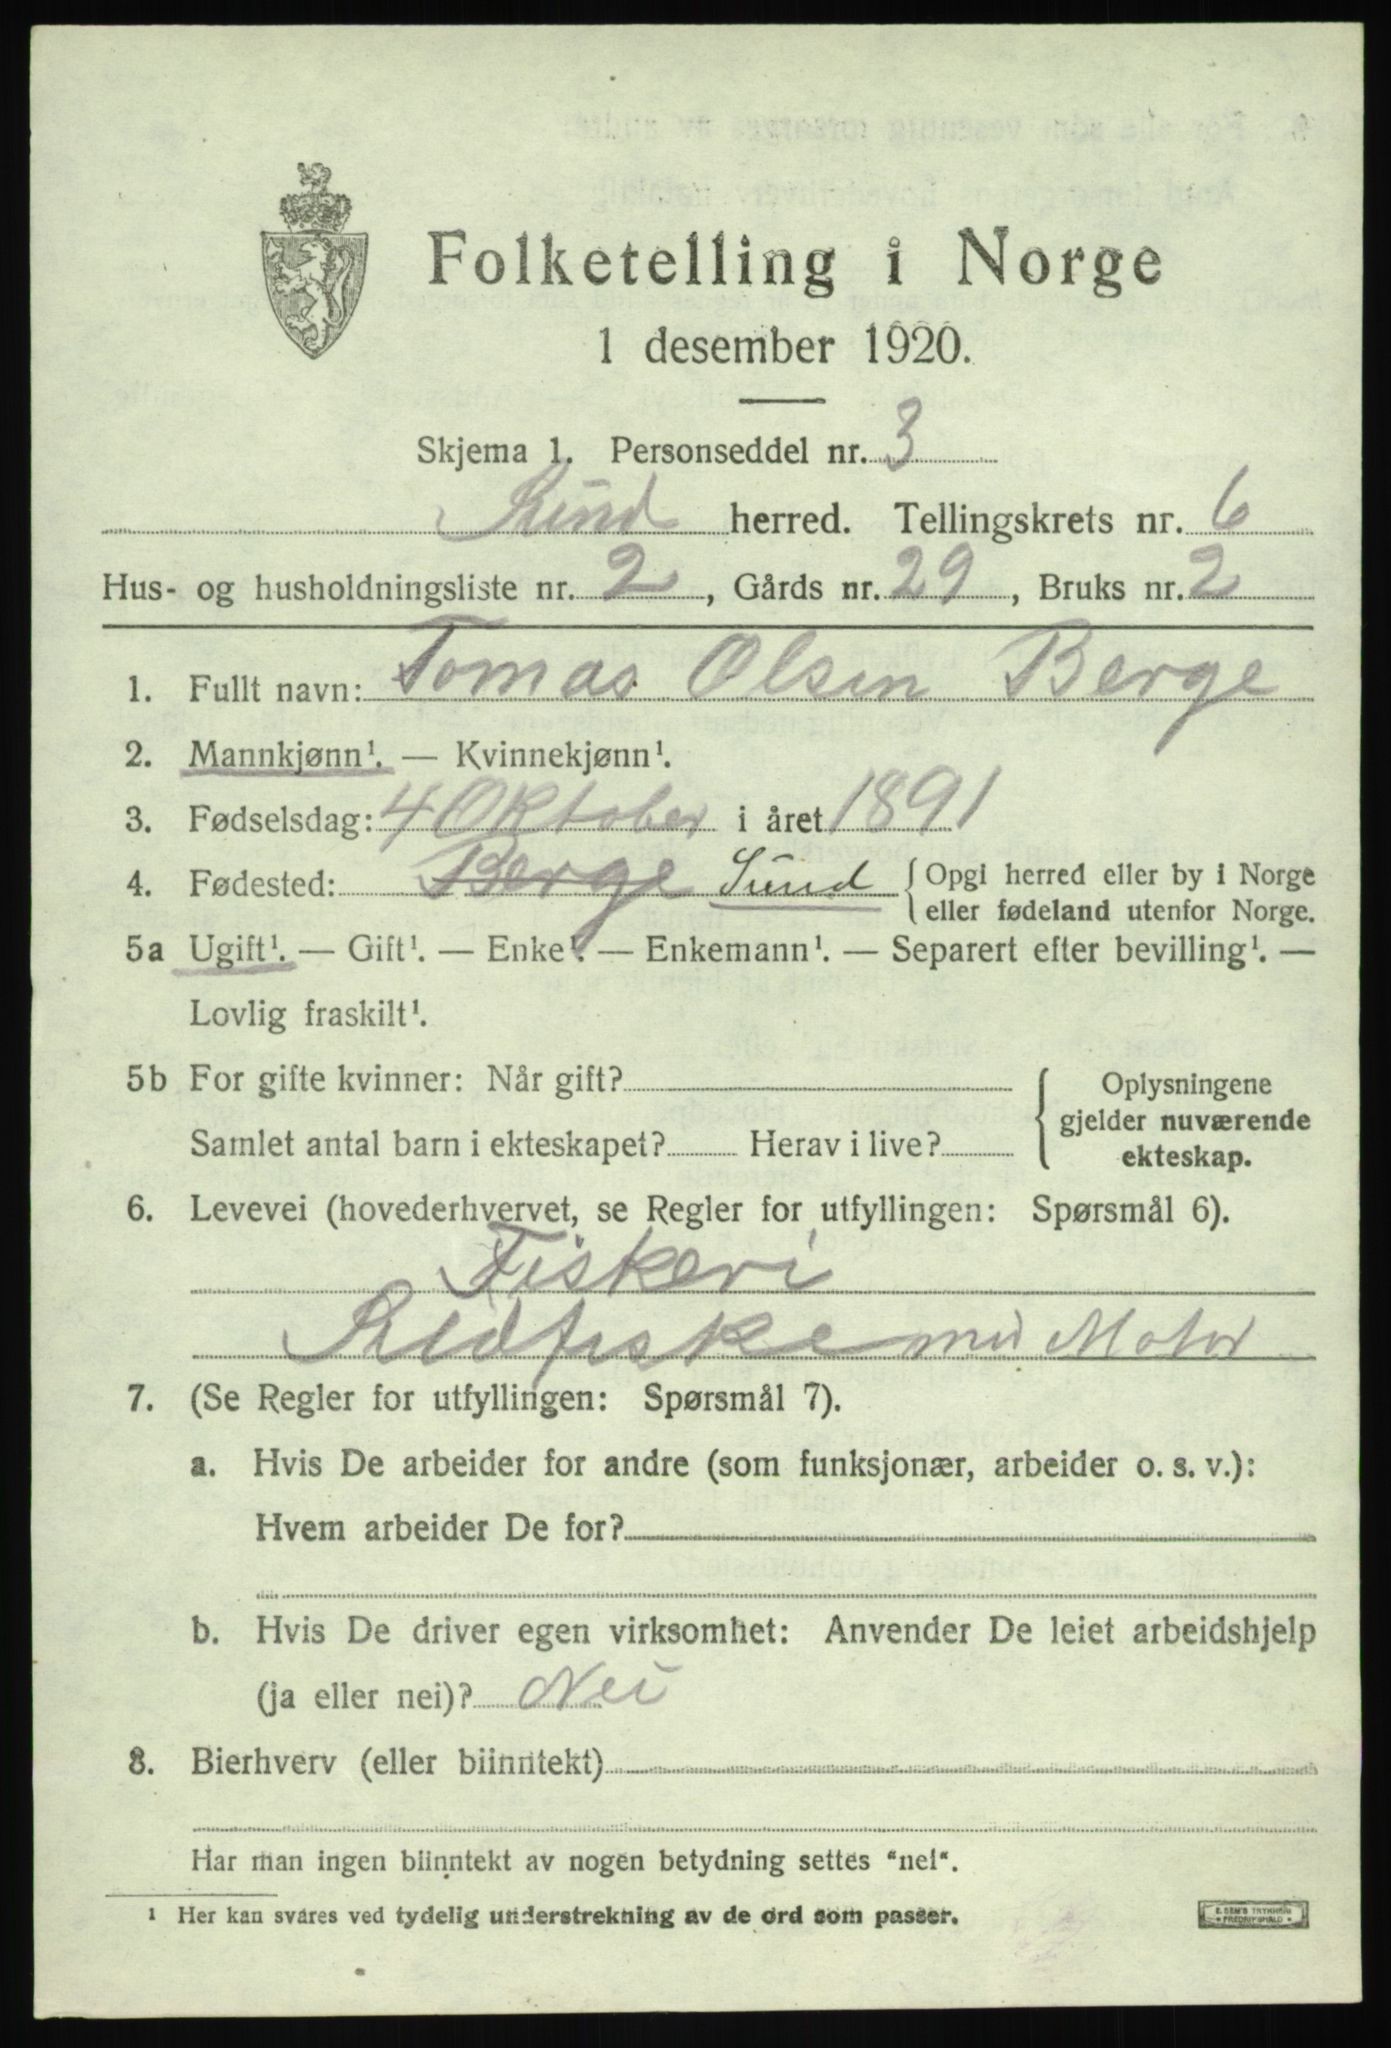 Folketelling i Norge
1 desember 1920.
Skjema 1. Personseddel nr. 3
Sund herred. Tellingskrets nr. 6
Hus- og husholdningsliste nr. 2, Gårds nr. 29, Bruks nr. 2
1. Fullt navn: Tomas Olsen Berge
2. Mannkjønn¹. — Kvinnekjønn¹.
3. Fødselsdag: 4 Oktober i året 1891
4. Fødested: Berge Sund { Opgi herred eller by i Norge
eller fødeland utenfor Norge.
5a Ugift¹. — Gift¹. — Enke¹. — Enkemann¹. — Separert efter bevilling¹. —
Lovlig fraskilt¹.
5b For gifte kvinner: Når gift?
Samlet antal barn i ekteskapet? Herav i live?
{ Oplysningene
gjelder nuværende
ekteskap.
6. Levevei (hovederhvervet, se Regler for utfyllingen: Spørsmål 6).
Fiskeri
Sildfiske med Motor
7. (Se Regler for utfyllingen: Spørsmål 7).
a. Hvis De arbeider for andre (som funksjonær, arbeider o. s. v.):
Hvem arbeider De for?
b. Hvis De driver egen virksomhet: Anvender De leiet arbeidshjelp
(ja eller nei)? Nei
8. Bierhverv (eller biinntekt)
Har man ingen biinntekt av nogen betydning settes "nei".
¹ Her kan svares ved tydelig understrekning av de ord som passer.
E. SEM'S TRYKKERI
FREDRIKSHALD